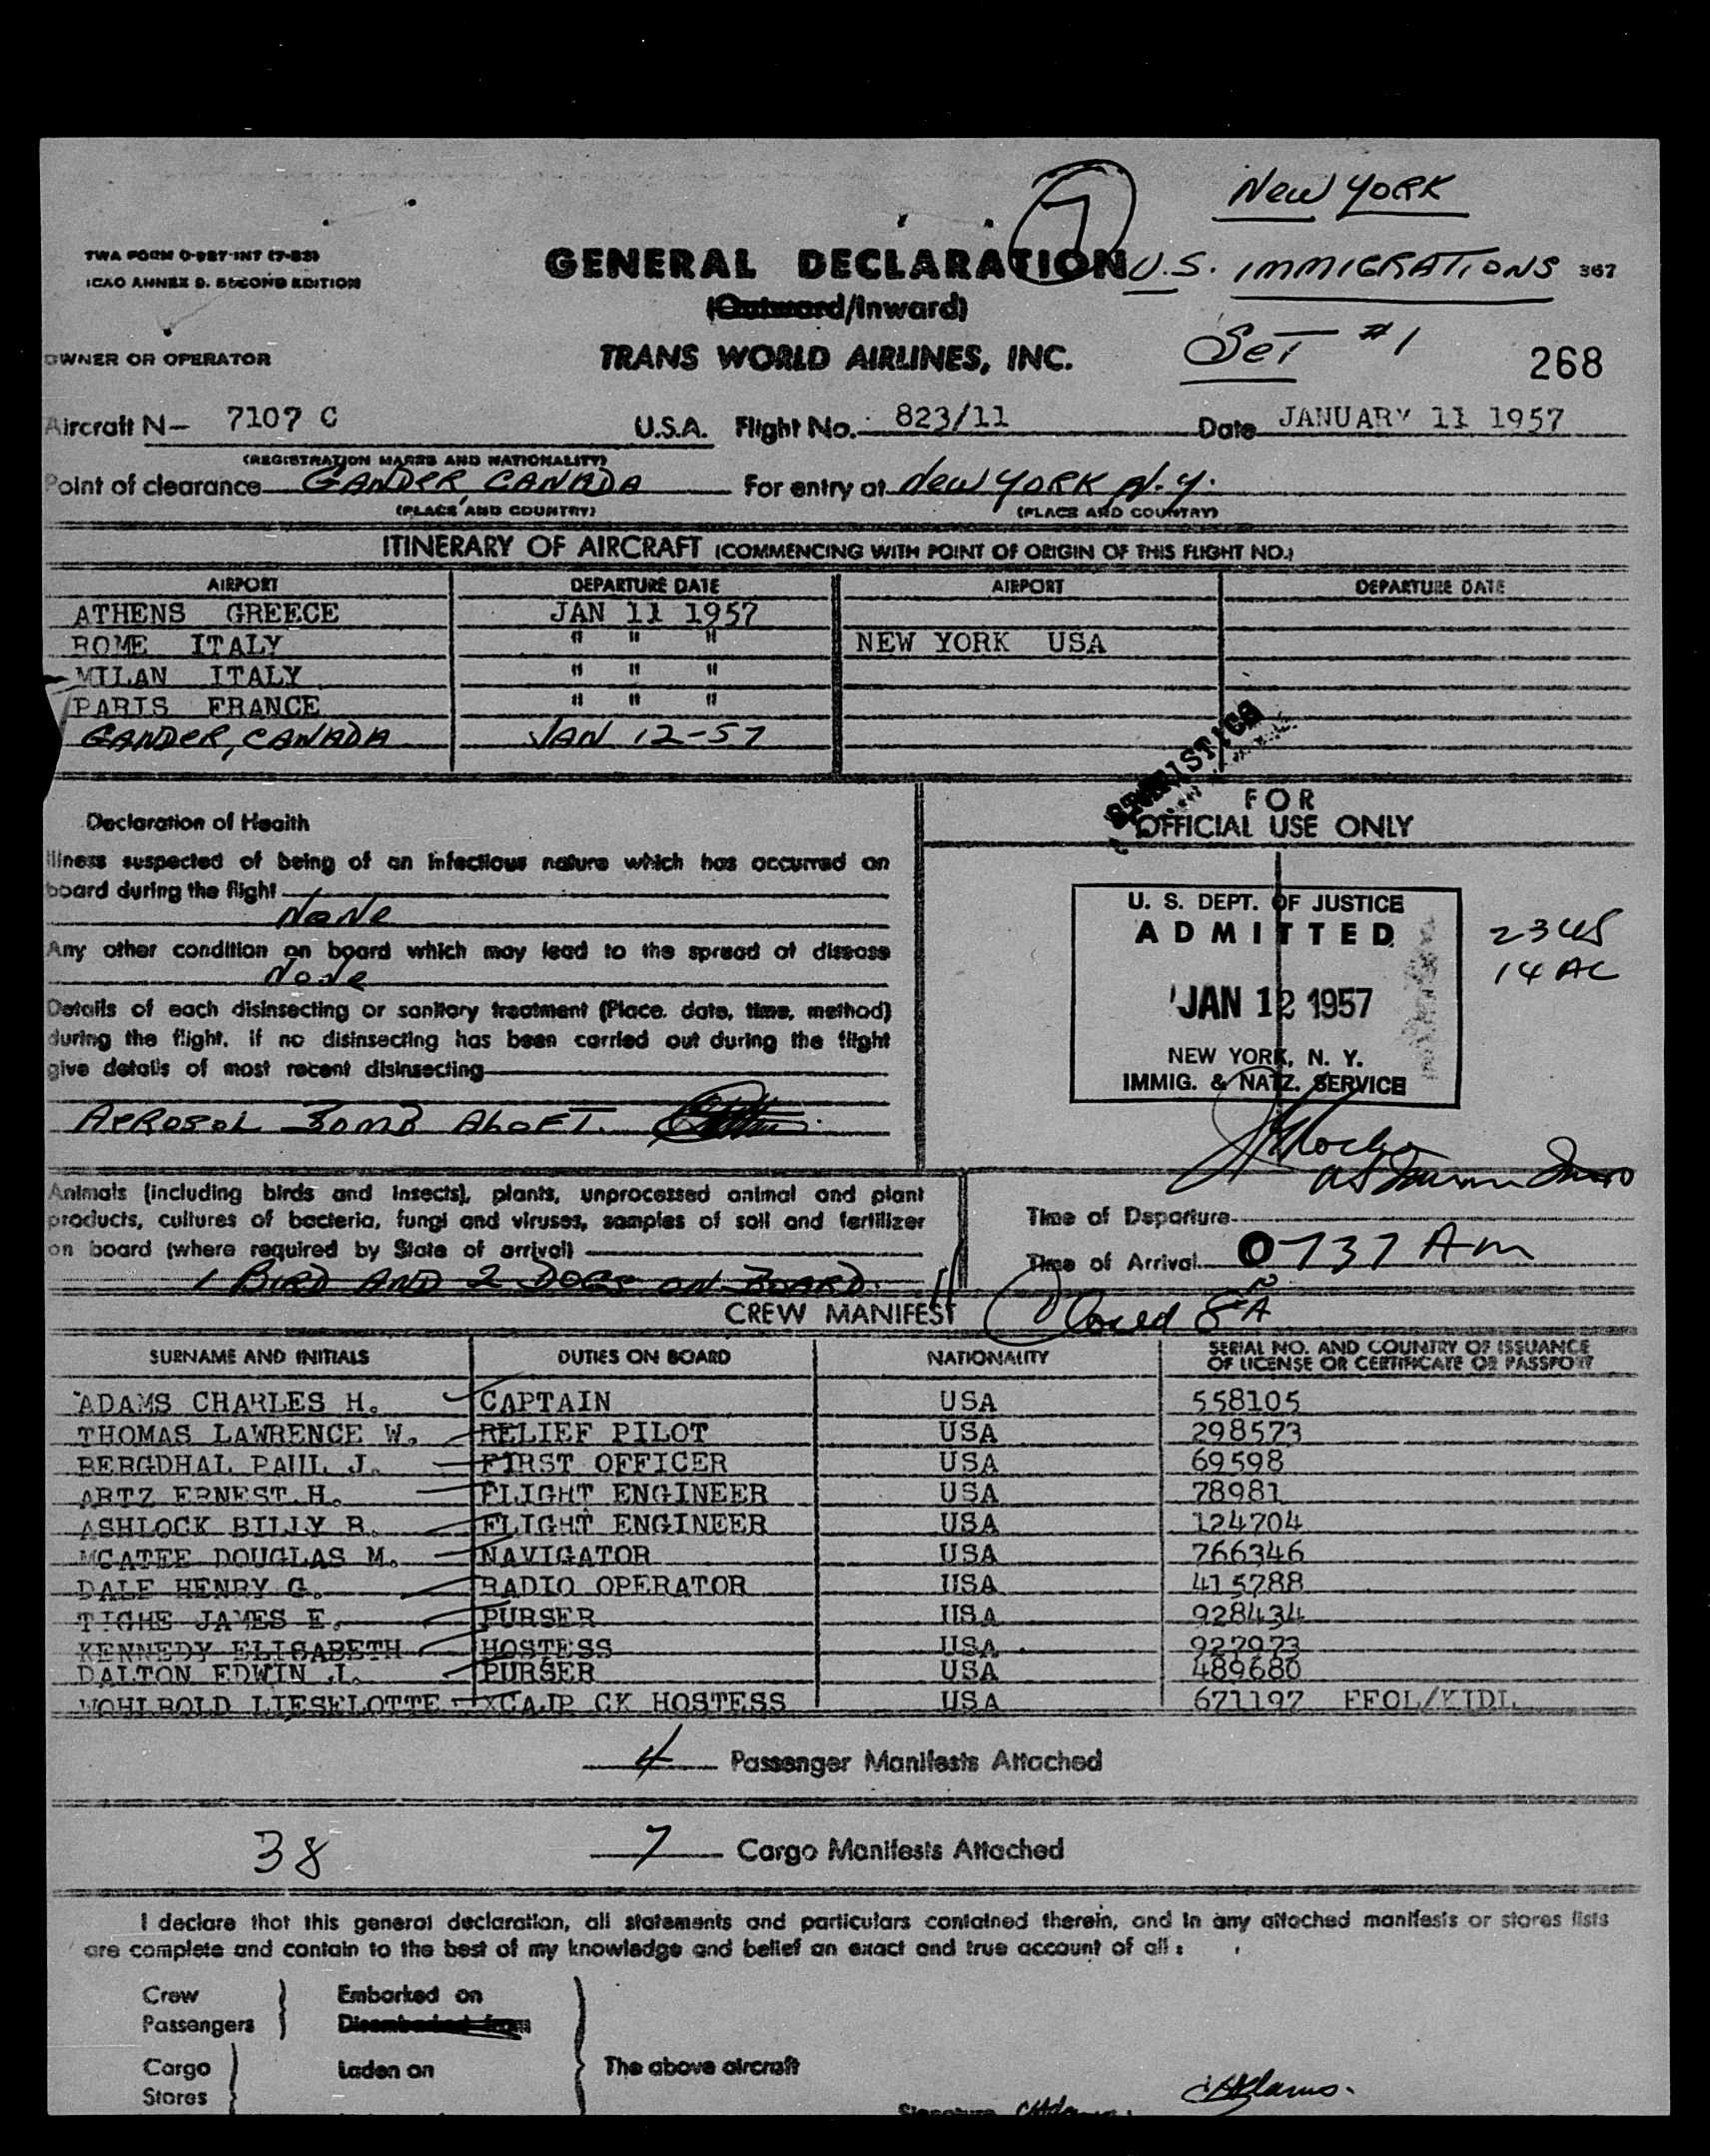 New York
TWA FORM O-987-INT (7-53)
ICAO ANNEX 9. SECOND EDITION
GENERAL DECLARATION
U.S. IMMIGRATIONS 367
(Outward/Inward)
Set #1
OWNER OR OPERATOR TRANS WORLD AIRLINES, INC. 268
Aircraft N- 7107 C U.S.A. Flight No. 823/11 Date JANUARY 11 1957
(REGISTRATION MARKS AND NATIONALITY)
Point of clearance GANDER, CANADA For entry at New York N.Y.
(PLACE AND COUNTRY) (PLACE AND COUNTRY)
ITINERARY OF AIRCRAFT (COMMENCING WITH POINT OF ORIGIN OF THIS FLIGHT NO.)
AIRPORT DEPARTURE DATE AIRPORT DEPARTURE DATE
ATHENS GREECE JAN 11 1957
ROME ITALY " " " NEW YORK USA
MILAN ITALY " " "
PARIS FRANCE " " "
GANDER, CANADA JAN 12-57
Declaration of Health
Illness suspected of being of an infectious nature which has occurred on
board during the flight
None
Any other condition on board which may lead to the spread of disease
None
Details of each disinsecting or sanitary treatment (Place, date, time, method)
during the flight. if no disinsecting has been carried out during the flight
give details of most recent disinsecting
AEROSOL BOMB ALOFT.
STATISTICS
FOR
OFFICIAL USE ONLY
U. S. DEPT. OF JUSTICE
ADMITTED
JAN 12 1957
NEW YORK, N. Y.
IMMIG. & NATZ. SERVICE
23 US
14 AL
Animals (including birds and insects), plants, unprocessed animal and plant
products, cultures of bacteria, fungi and viruses, samples of soil and fertilizer
on board (where required by State of arrival)
1 BIRD AND 2 DOGS ON BOARD.
Time of Departure
Time of Arrival 0737 Am
CREW MANIFEST
SURNAME AND INITIALS DUTIES ON BOARD NATIONALITY SERIAL NO. AND COUNTRY OF ISSUANCE
OF LICENSE OR CERTIFICATE OR PASSPORT
ADAMS CHARLES H. CAPTAIN USA 558105
THOMAS LAWRENCE W. RELIEF PILOT USA 298573
BERGDHAL PAUL J. FIRST OFFICER USA 69598
ARTZ ERNEST H. FLIGHT ENGINEER USA 78981
ASHLOCK BILLY B. FLIGHT ENGINEER USA 124704
MCATEE DOUGLAS M. NAVIGATOR USA 766346
DALE HENRY G. RADIO OPERATOR USA 415788
TIGHE JAMES E. PURSER USA 928434
KENNEDY ELISABETH HOSTESS USA 927973
DALTON EDWIN J. PURSER USA 489680
WOHLBOLD LIESELOTTE CK HOSTESS USA 671197
4 Passenger Manifests Attached
38 7 Cargo Manifests Attached
I declare that this general declaration, all statements and particulars contained therein, and in any attached manifests or stores lists
are complete and contain to the best of my knowledge and belief an exact and true account of all :
Crew Embarked on
Passengers Disembarked from
Cargo Laden on The above aircraft
Stores
CHAdams.
Signature CHAdams.